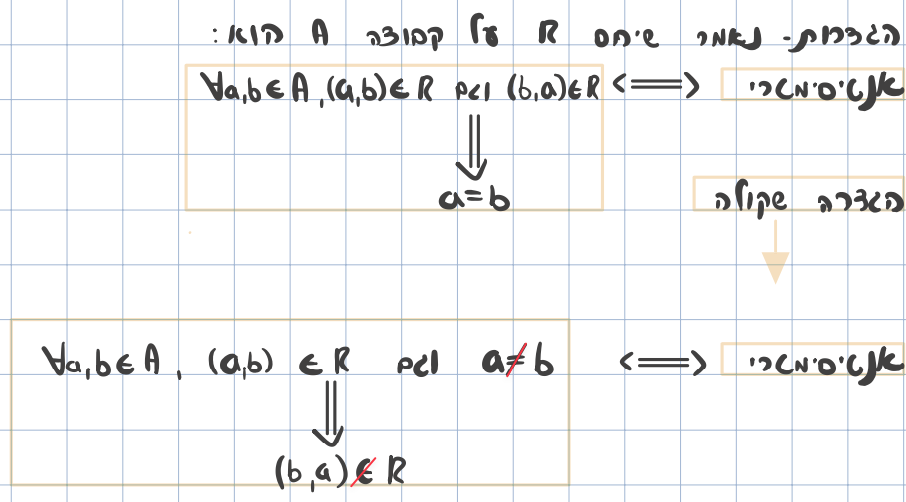 הגדרות- נאמר שיחס R על קבוצה A הוא:
אנטיסימטרי <=> ∀a,b∈A,(a,b)∈R וגם (b,a)∈R
⇓
a=b
הגדרה שקולה
אנטיסימטרי <=> ∀a,b∈A, (a,b) ∈ R וגם a≠b
⇓
(b,a)∉R